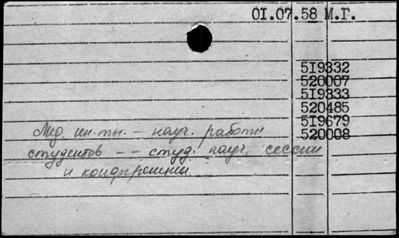 01.07.58 М.Г.
519332
520007
519333
520485
519679
520008
Мед. ин-ты. – науч. работа
студентов -- студ. науч. сессии
и конференции